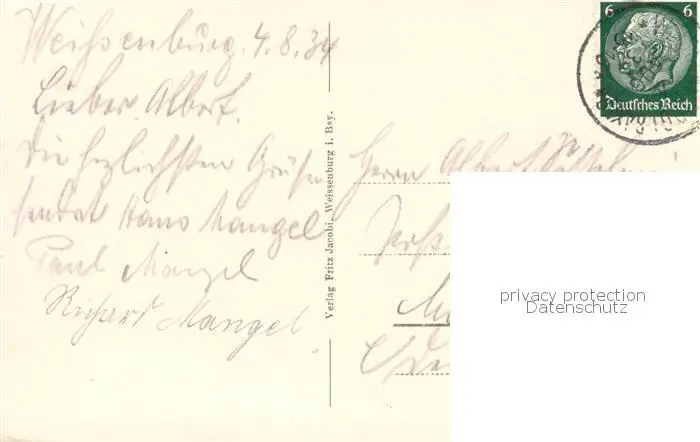 Weißenburg. 4.8.34
Lieber Albert.
Die herzlichsten Grüße
sendet Hans Mangel
Paul Mangel
Richard Mangel.
Verlag Fritz Jacobi, Weissenburg i. Bay.
6 6
Deutsches Reich
Herrn Albert
privacy protection
Datenschutz